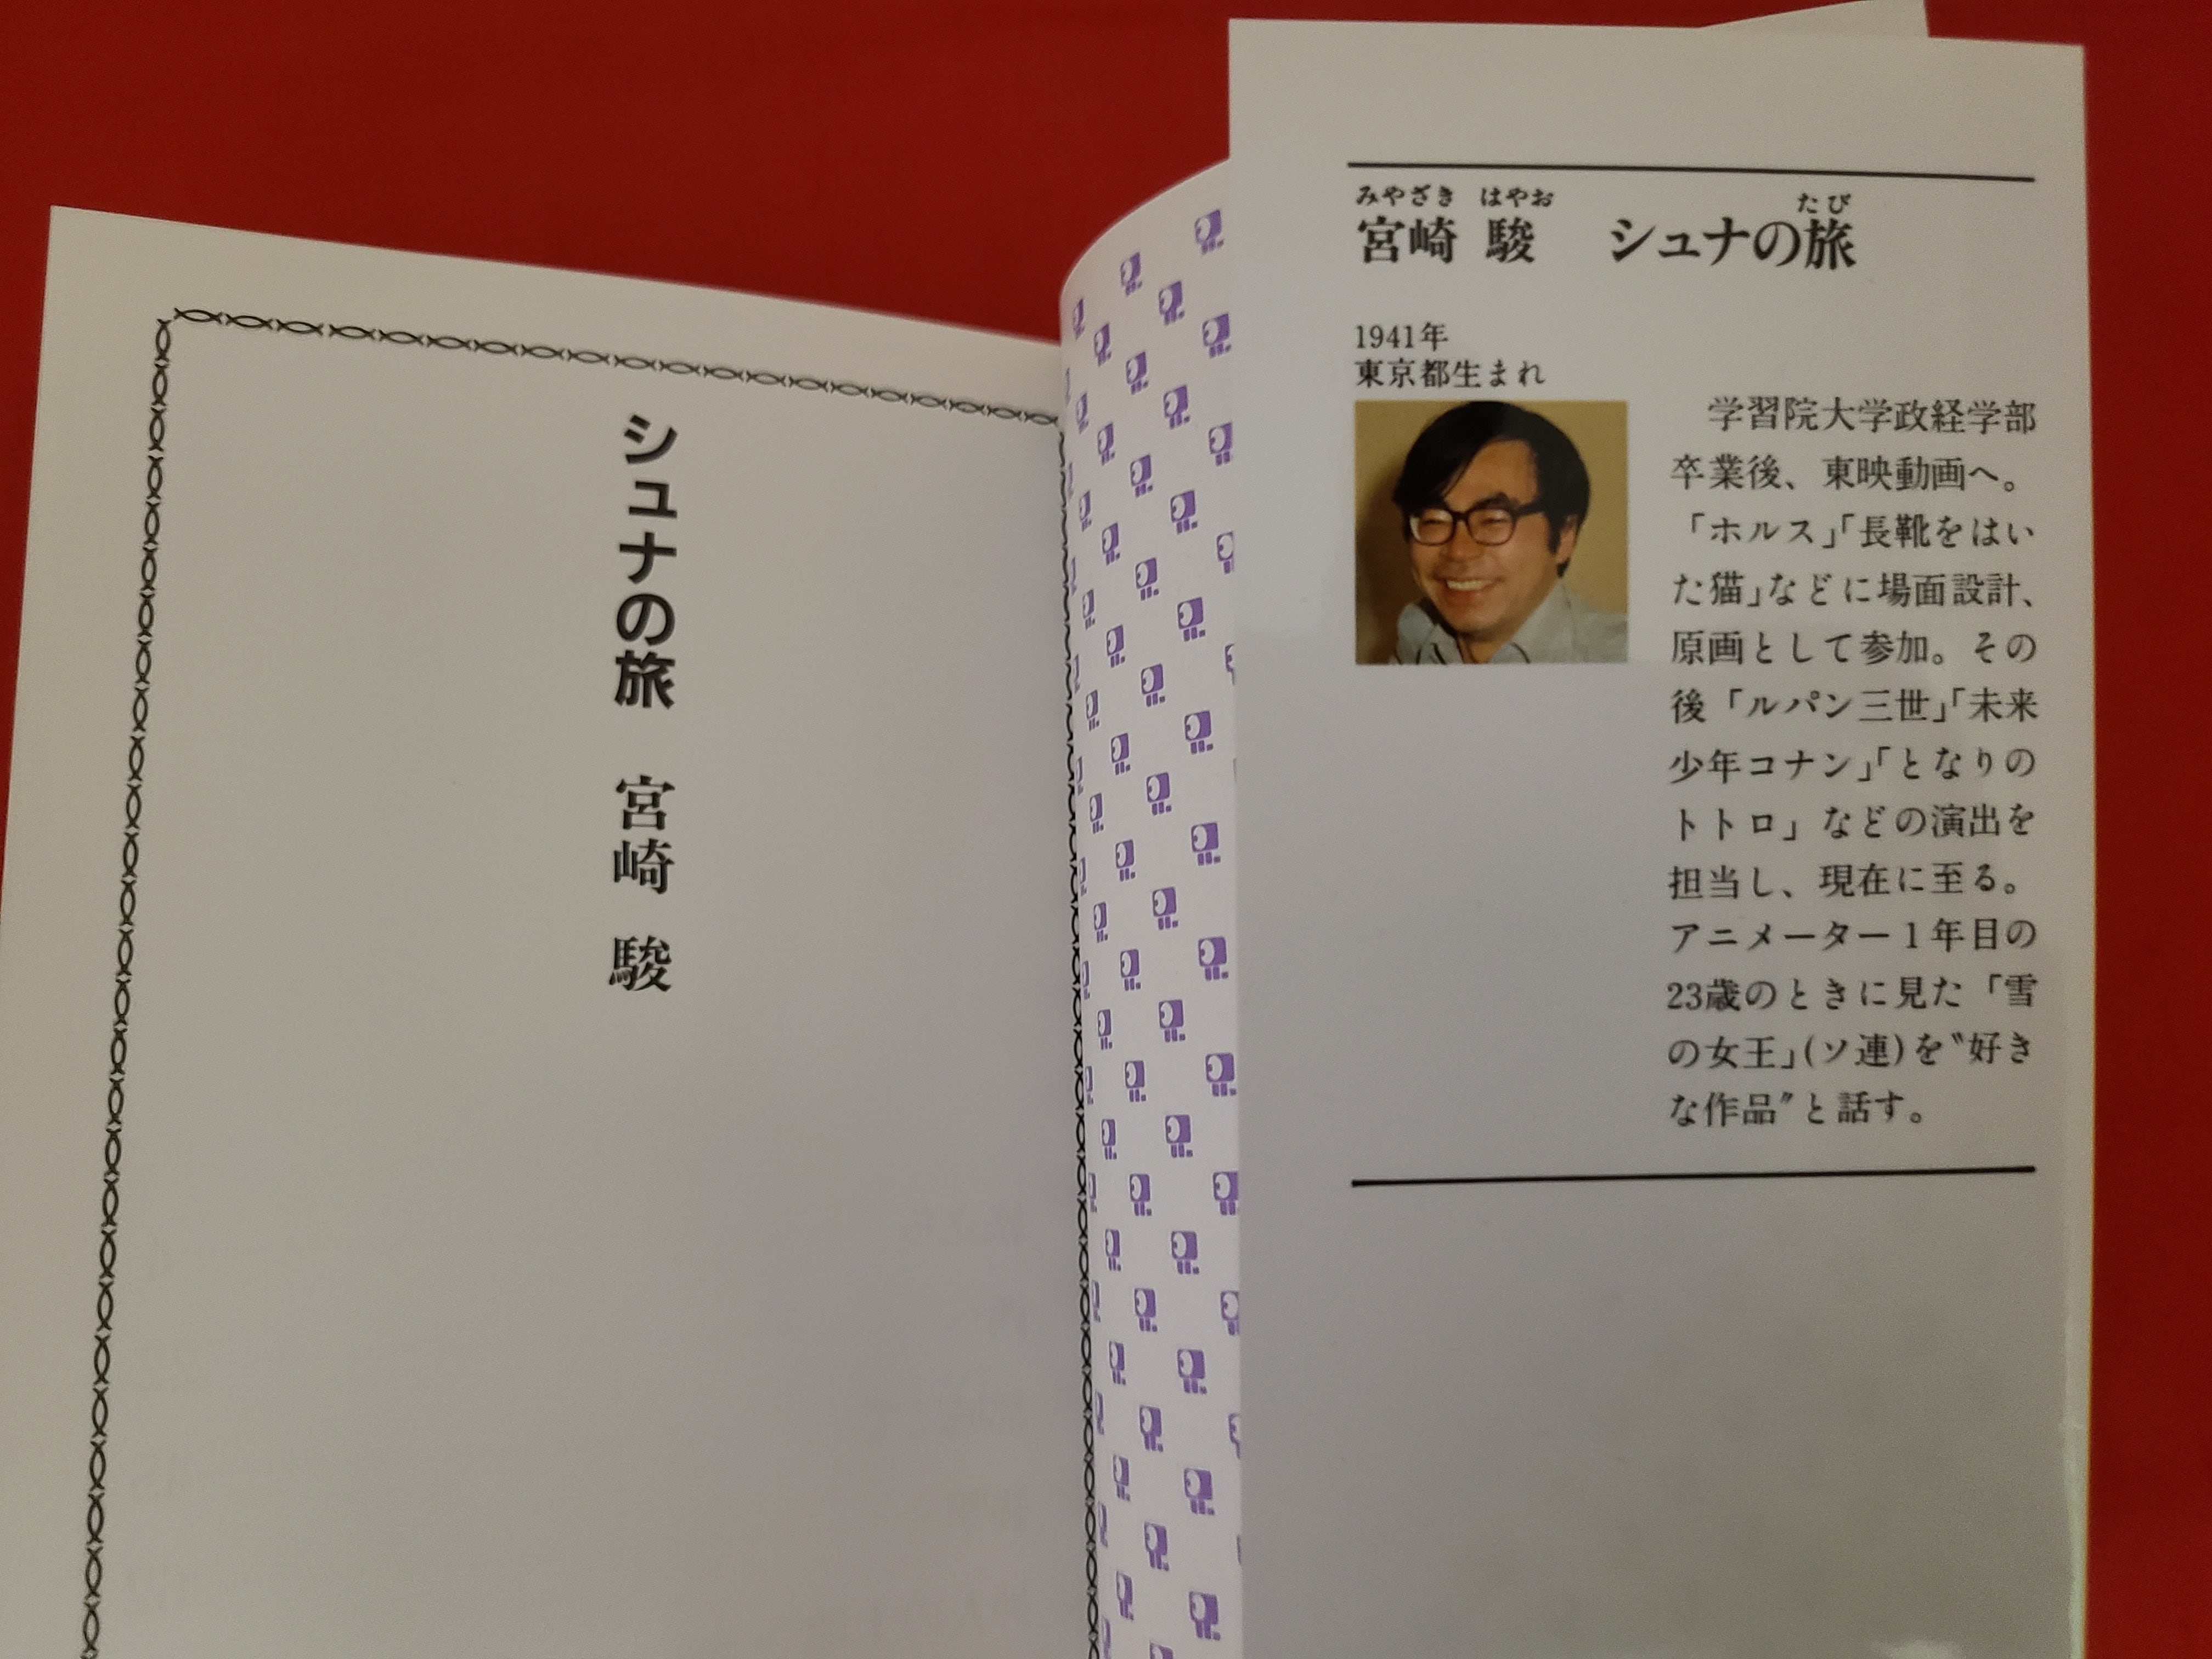 シュナの旅 宮崎 駿
みやざき はやお たび
宮崎 駿 シュナの旅
1941年
東京都生まれ
学習院大学政経学部
卒業後、東映動画へ。
「ホルス」「長靴をはい
た猫」などに場面設計、
原画として参加。その
後「ルパン三世」「未来
少年コナン」「となりの
トトロ」などの演出を
担当し、現在に至る。
アニメーター1年目の
23歳のときに見た「雪
の女王」(ソ連)を〝好き
な作品〟と話す。